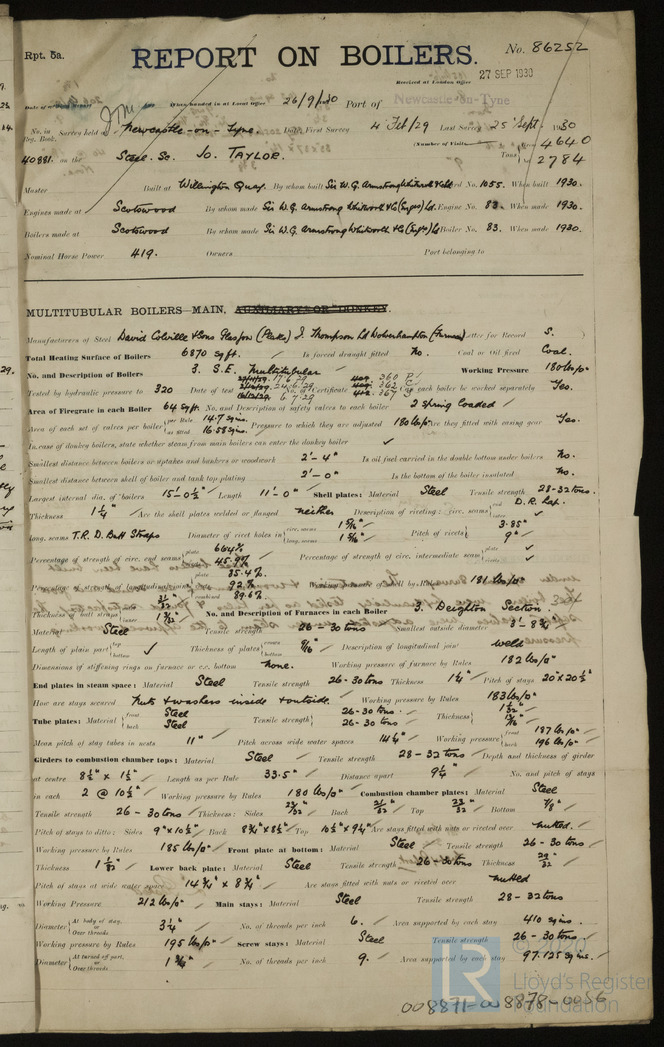 Rpt. 5a.
REPORT ON BOILERS.
No. 86252
Received at London Office
27 SEP 1930
When handed in at Local Office 26/9/30 Port of Newcastle-on-Tyne
No. in Reg. Book. Survey held at Newcastle-on-Tyne. Date, First Survey 4 Feb/29 Last Survey 25 Sept. 1930
(Number of Visits
40881. on the Steel. Sc. Jo. TAYLOR. Tons 4640 2784
Master Built at Willington Quay. By whom built Sir W. G. Armstrong Whitworth & Co Ld Yard No. 1055. When built 1930.
Engines made at Scotswood By whom made Sir W. G. Armstrong Whitworth & Co (Engrs) Ld. Engine No. 83. When made 1930.
Boilers made at Scotswood By whom made Sir W. G. Armstrong Whitworth & Co (Engrs) Ld Boiler No. 83. When made 1930.
Nominal Horse Power 419. Owners Port belonging to
MULTITUBULAR BOILERS MAIN, AUXILIARY OR DONKEY.
Manufacturers of Steel David Colville & Sons Glasgow (Plates) J. Thompson Ld Wolverhampton (Furnaces) Letter for Record S.
Total Heating Surface of Boilers 6870 sq ft. Is forced draught fitted No. Coal or Oil fired Coal.
No. and Description of Boilers 3. S.E. Multitubular Working Pressure 180 lbs/□"
Tested by hydraulic pressure to 320 Date of test 17.6.29 24.6.29 6.7.29 No. of Certificate 360 362 367 Can each boiler be worked separately Yes.
Area of Firegrate in each Boiler 64 sq ft. No. and Description of safety valves to each boiler 2 spring loaded
Area of each set of valves per boiler per Rule 14.7 sq ins. as fitted 16.58 sq ins. Pressure to which they are adjusted 180 lbs/□" Are they fitted with easing gear Yes.
In case of donkey boilers, state whether steam from main boilers can enter the donkey boiler ✓
Smallest distance between boilers or uptakes and bunkers or woodwork 2'-4" Is oil fuel carried in the double bottom under boilers No.
Smallest distance between shell of boiler and tank top plating 2'-0" Is the bottom of the boiler insulated No.
Largest internal dia. of boilers 15'-0½" Length 11'-0" Shell plates: Material Steel Tensile strength 28-32 tons.
Thickness 1¼" Are the shell plates welded or flanged neither Description of riveting: circ. seams end D.R. Lap. inter. ✓
long. seams T.R. D. Butt Straps Diameter of rivet holes in circ. seams 1 5/16" long. seams 1 5/16" Pitch of rivets 3.85" 9"
Percentage of strength of circ. end seams plate 66% rivets 45.9% Percentage of strength of circ. intermediate seam plate ✓ rivets ✓
Percentage of strength of longitudinal joint plate 85.4% rivets 92.% combined 89.6% Working pressure of shell by Rules 181 lbs/□"
Thickness of butt straps outer 31/32" inner 1 3/32" No. and Description of Furnaces in each Boiler 3. Deighton Section.
Material Steel Tensile strength 26-30 tons Smallest outside diameter 3'-8¾"
Length of plain part top bottom ✓ Thickness of plates crown bottom 9/16" Description of longitudinal joint weld
Dimensions of stiffening rings on furnace or c.c. bottom None. Working pressure of furnace by Rules 182 lbs/□"
End plates in steam space: Material Steel Tensile strength 26-30 tons Thickness 1¼" Pitch of stays 20" x 20½"
How are stays secured Nuts & washers inside & outside. Working pressure by Rules 183 lbs/□"
Tube plates: Material front Steel back Steel Tensile strength 26-30 tons 26-30 tons Thickness 1 1/32" 13/16"
Mean pitch of stay tubes in nests 11" Pitch across wide water spaces 14¼" Working pressure front 187 lbs/□" back 196 lbs/□"
Girders to combustion chamber tops: Material Steel Tensile strength 28-32 tons Depth and thickness of girder
at centre 8½" x 1½" Length as per Rule 33.5" Distance apart 9¼" No. and pitch of stays
in each 2 @ 10½" Working pressure by Rules 180 lbs/□" Combustion chamber plates: Material Steel
Tensile strength 26-30 tons Thickness: Sides 23/32 Back 21/32" Top 23/32 Bottom 7/8"
Pitch of stays to ditto: Sides 9" x 10½" Back 8¾" x 8½" Top 10½" x 9¼" Are stays fitted with nuts or riveted over nutted.
Working pressure by Rules 185 lbs/□" Front plate at bottom: Material Steel Tensile strength 26-30 tons
Thickness 1 1/32" Lower back plate: Material Steel Tensile strength 26-30 tons Thickness 29/32
Pitch of stays at wide water space 14¾" x 8¾" Are stays fitted with nuts or riveted over nutted
Working Pressure 212 lbs/□" Main stays: Material Steel Tensile strength 28-32 tons
Diameter At body of stay, or Over threads 3¼" No. of threads per inch 6. Area supported by each stay 410 sq ins.
Working pressure by Rules 195 lbs/□" Screw stays: Material Steel Tensile strength 26-30 tons.
Diameter At turned off part, or Over threads No. of threads per inch 9. Area supported by each stay 97.125 sq ins.
© 2020
LR
Lloyd's Register
Foundation
008871-008878-0056